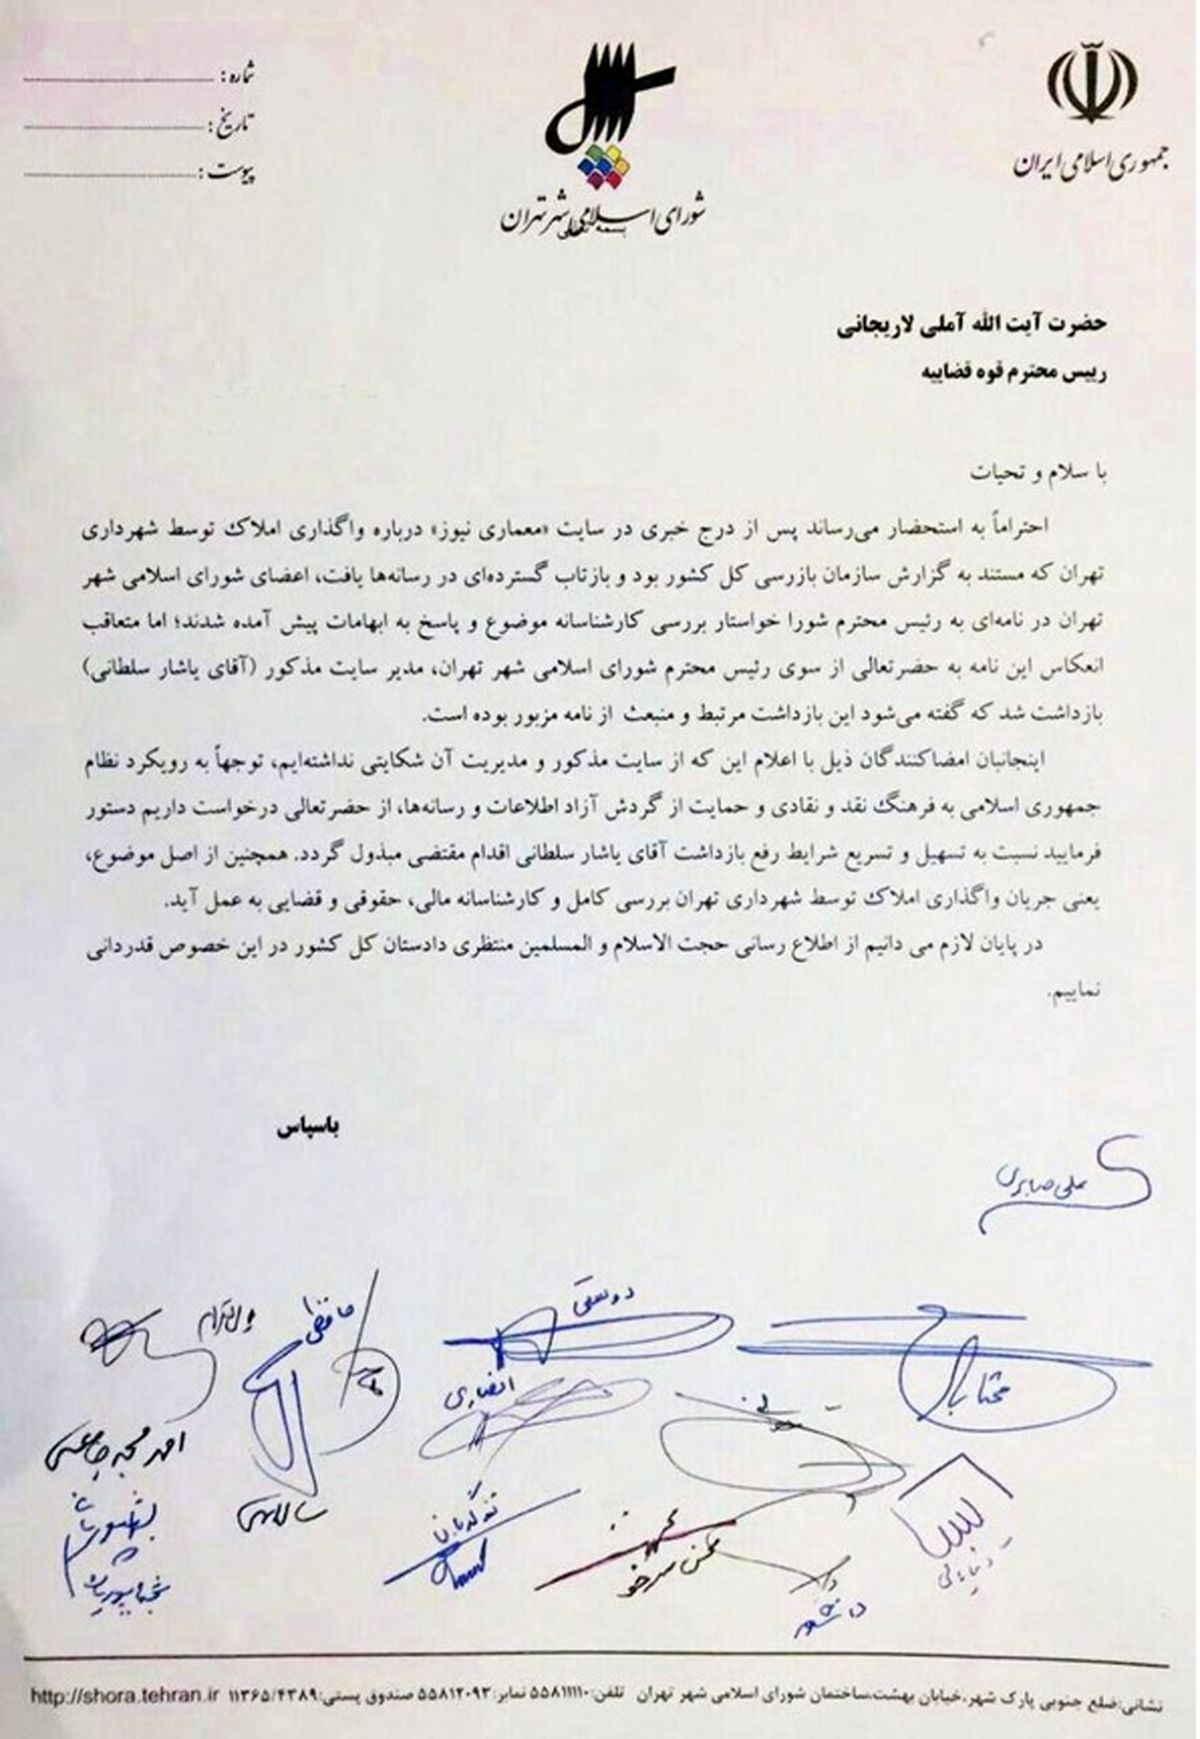 جمهوری اسلامی ایران
شورای اسلامی شهر تهران
شماره :
تاریخ :
پیوست :
حضرت آیت الله آملی لاریجانی
رییس محترم قوه قضاییه
با سلام و تحیات
احتراماً به استحضار می‌رساند پس از درج خبری در سایت «معماری نیوز» درباره واگذاری املاک توسط شهرداری
تهران که مستند به گزارش سازمان بازرسی کل کشور بود و بازتاب گسترده‌ای در رسانه‌ها یافت، اعضای شورای اسلامی شهر
تهران در نامه‌ای به رئیس محترم شورا خواستار بررسی کارشناسانه موضوع و پاسخ به ابهامات پیش آمده شدند؛ اما متعاقب
انعکاس این نامه به حضرتعالی از سوی رئیس محترم شورای اسلامی شهر تهران، مدیر سایت مذکور (آقای یاشار سلطانی)
بازداشت شد که گفته می‌شود این بازداشت مرتبط و منبعث از نامه مزبور بوده است.
اینجانبان امضاکنندگان ذیل با اعلام این که از سایت مذکور و مدیریت آن شکایتی نداشته‌ایم، توجهاً به رویکرد نظام
جمهوری اسلامی به فرهنگ نقد و نقادی و حمایت از گردش آزاد اطلاعات و رسانه‌ها، از حضرتعالی درخواست داریم دستور
فرمایید نسبت به تسهیل و تسریع شرایط رفع بازداشت آقای یاشار سلطانی اقدام مقتضی مبذول گردد. همچنین از اصل موضوع،
یعنی جریان واگذاری املاک توسط شهرداری تهران بررسی کامل و کارشناسانه مالی، حقوقی و قضایی به عمل آید.
در پایان لازم می دانیم از اطلاع رسانی حجت الاسلام و المسلمین منتظری دادستان کل کشور در این خصوص قدردانی
نماییم.
باسپاس
علی صابری
دوستی
حافظی
مختاباد
انصاری
احمد مسجدجامعی
سالاری
تندگویان
محسن سرخو
دنیامالی
دانشور
نشانی:ضلع جنوبی پارک شهر،خیابان بهشت،ساختمان شورای اسلامی شهر تهران تلفن:۵۵۸۱۱۱۱۰ نمابر:۵۵۸۱۲۰۹۳ صندوق پستی:۱۱۳۶۵/۴۳۸۹ http://shora.tehran.ir